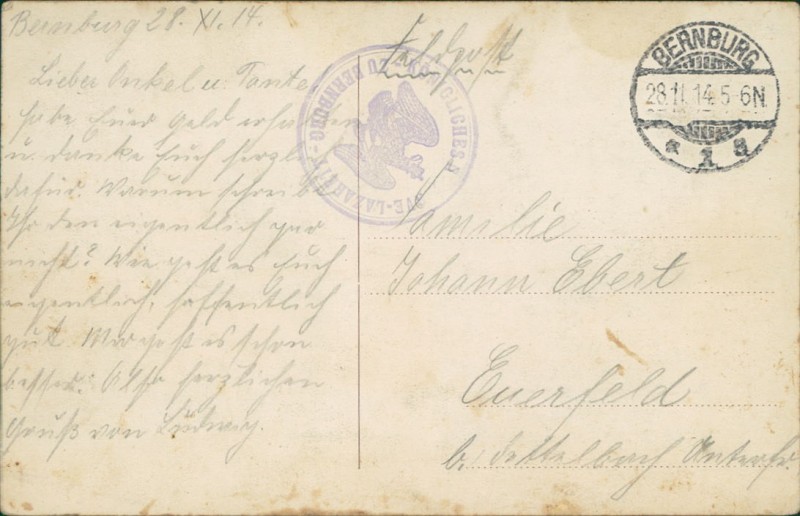 Bernburg 28. XI. 14.
Lieber Onkel u. Tante
habe Euer Geld erhalten
u. danke Euch herzl.
dafür. Warum schreibt
Ihr den eigentlich gar
nicht? Wie geht es Euch
eigentlich, hoffentlich
gut. Mir geht es schon
besser. Also herzlichen
Gruß von Ludwig.
Feldpost
KÖNIGLICHES RESERVE-LAZARETT ZU BERNBURG
BERNBURG
28.11.14.5-6N.
* 1 a
Familie
Johann Ebert
Euerfeld
b. Dettelbach Unterfr.